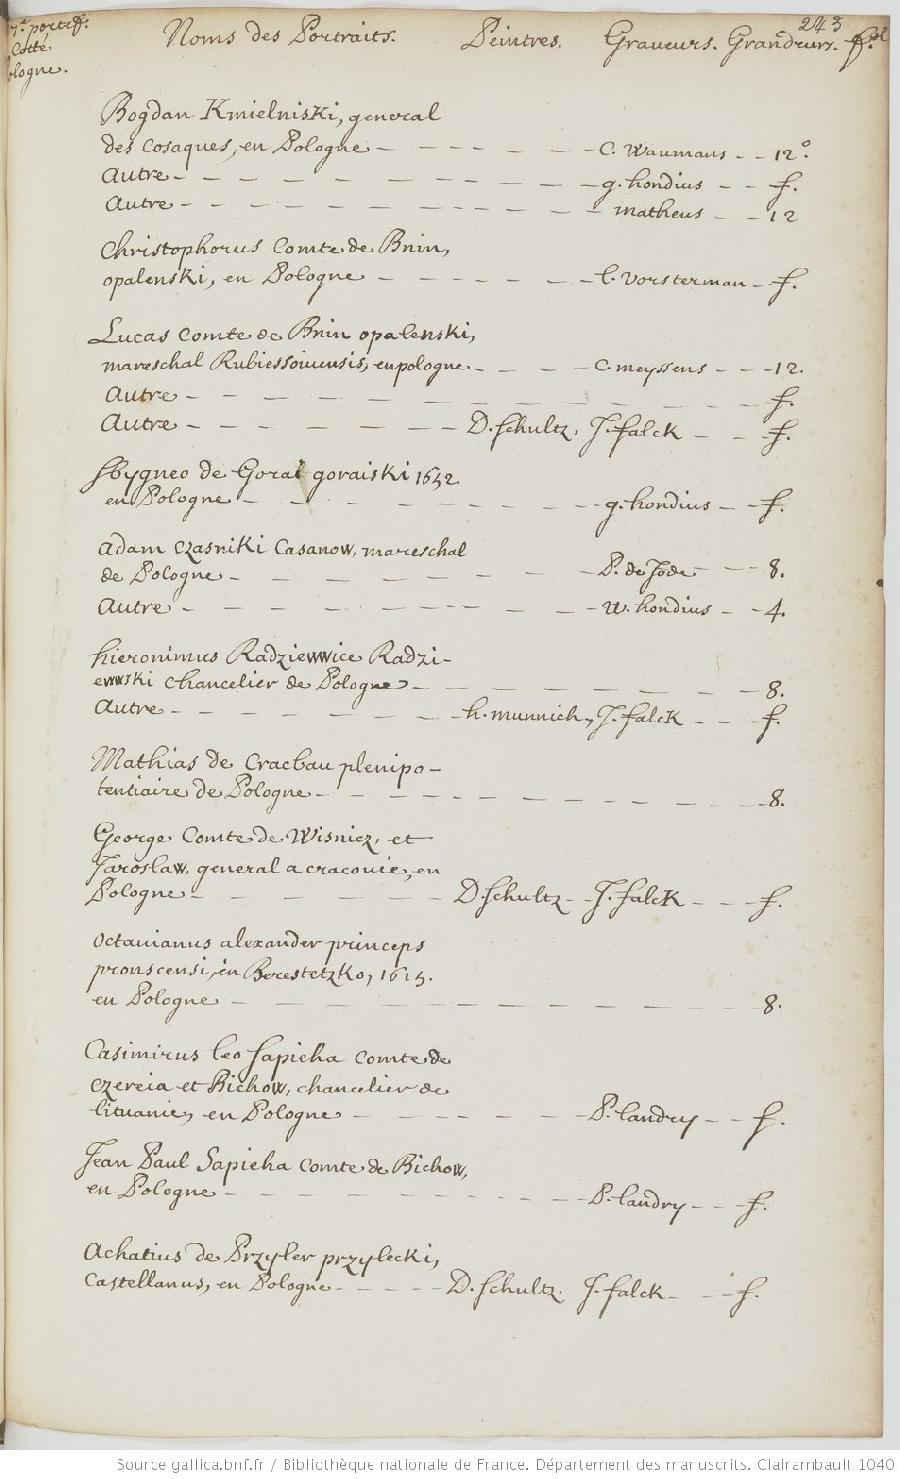 243
7.e portef.
Cotté
ologne.
Noms des Portraits. Peintres. Graveurs. Grandeurs. fol
Bogdan Kmielniski, general
des Cosaques, en Pologne - - - - - - - C. Waumans - - 12°.
Autre - - - - - - - - - - g. hondius - - f.
Autre - - - - - - - - - - matheus - - 12
Christophorus Comte de Bnin,
opalenski, en Pologne - - - - - - l. Vorsterman - f.
Lucas Comte de Bnin opalenski,
mareschal Rubiessouiensis, en pologne. - - - - C. meyssens - - - 12.
Autre - - - - - - - - - - - - - f.
Autre - - - - - - - - D. Schultz. J. falck - - f.
Sbygneo de Gorai goraiski 1652
en Pologne - - - - - - - - - g. hondius - - f.
Adam Czasniki Casanow, mareschal
de Pologne - - - - - - - - P. de Jode - - 8.
Autre - - - - - - - - - - - W. hondius - - 4.
hieronimus Radziewwice Radzi-
ewwski Chancelier de Pologne - - - - - - - - - 8.
Autre - - - - - - - - h. munnich, J. falck - - f.
Mathias de Cracbau plenipo-
tentiaire de Pologne - - - - - - - - - - - 8.
George Comte de Wisnicz, et
Jaroslaw, general a cracovie, en
Pologne - - - - - - D. Schultz - J. falck - - - f.
Octavianus alexander princeps
pronscensi, en Berestetzko, 1615.
en Pologne - - - - - - - - - - - - - 8.
Casimirus leo Sapieha Comte de
Czereia et Bichow, chancelier de
lituanie, en Pologne - - - - - - P. landry - - f.
Jean Paul Sapieha Comte de Bichow,
en Pologne - - - - - - - - - P. landry - - - f.
Achatius de Przyler przylecki,
Castellanus, en Pologne - - - - - D. Schultz. J. falck - - - f.
Source gallica.bnf.fr / Bibliothèque nationale de France. Département des manuscrits. Clairambault 1040